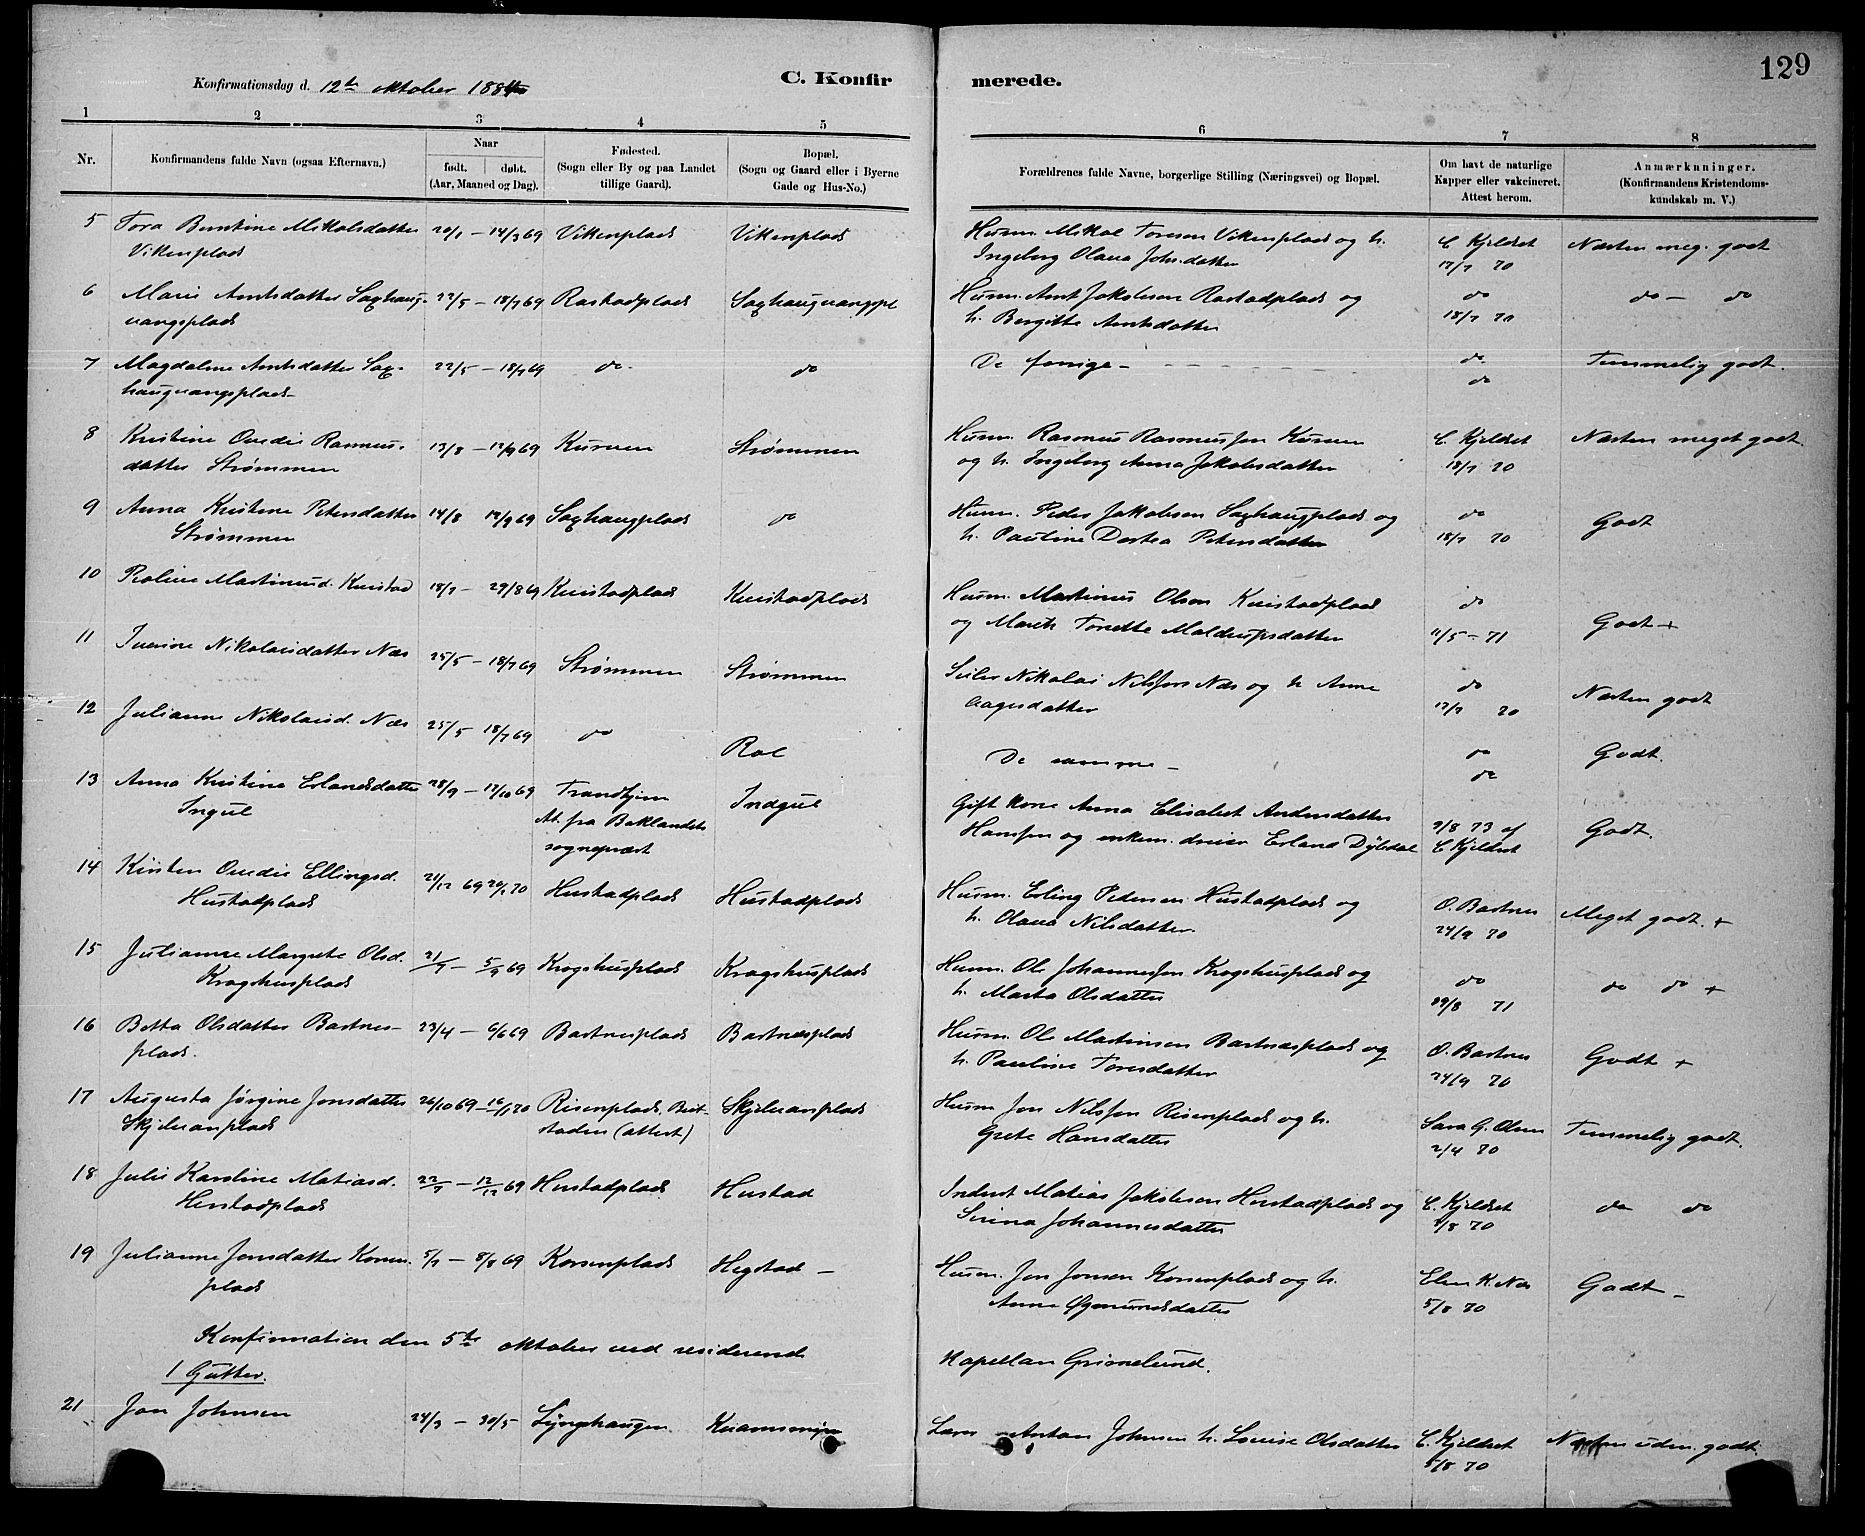 129
Konfirmationsdag d. 12te oktober 1884
C. Konfirmerede.
1 2 3 4 5 6 7 8
Nr.
Konfirmandens fulde Navn (ogsaa Efternavn.)
Naar
født. døbt.
(Aar, Maaned og Dag).
Fødested.
(Sogn eller By og paa Landet
tillige Gaard).
Bopæl.
(Sogn og Gaard eller i Byerne
Gade og Hus-No.)
Forældrenes fulde Navne, borgerlige Stilling (Næringsvei) og Bopæl.
Om havt de naturlige
Kapper eller vakcineret.
Attest herom.
Anmærkninger.
(Konfirmandens Kristendoms-
kundskab m. V.)
5 Tora Berntine Mikalsdatter 20/1 – 14/3 69 Vikenplads Vikenplads Husm. Mikal Toresen Vikenplads og h. C Kjeldset Næsten meg. godt
Vikenplads Ingeborg Olava Johs.datter 17/7 70
6 Marie Arntsdatter Saxhaug- 22/5 – 18/7 69 Rostadplads Saxhaugvangspl Husm. Arnt Jakobsen Rostadplads og do do – do
vangsplads h. Bergitte Arntsdatter 18/7 70
7 Magdalene Arntsdatter Sax- 22/5 – 18/7 69 do do De forrige – do Temmelig godt.
haugvangsplads do
8 Kristine Ovedie Rasmus- 13/8 – 19/9 69 Kurven Strømmen Husm. Rasmus Rasmussen Kurven C. Kjeldset Næsten meget godt.
datter Strømmen og h. Ingeborg Anna Jakobsdatter 18/7 70
9 Anna Kristine Petersdatter 14/8 19/9 69 Saxhaugplads do Husm. Peder Jakobsen Saxhaugplads og do Godt
Strømmen h. Pauline Dortea Petersdatter 18/7 70
10 Peoline Martinusd. Kvistad 18/7 – 29/8 69 Kvistadplads Kvistadplads Husm. Martinus Olsen Kvistadplads do Godt +
og Marith Tonette Maldrupsdatter 11/5 – 71
11 Iverine Nikolaisdatter Næs 25/5 – 18/7 69 Strømmen Strømmen Seiler Nikolai Nilssen Næs og h Anne do Næsten godt
Aagesdatter 17/7 70
12 Julianne Nikolaisd. Næs 25/5 18/7 69 do Rol De samme – do Godt.
do
13 Anna Kristine Erlandsdatter 28/9 – 17/10 69 Trondhjem Indgul Gift kone Anna Elisabet Andersdatter 9/8 73 af Godt.
Ingul At. fra Baklandets Hanssen og enkem. dreier Erland Dybdal C Kjeldset
sognepræst
14 Kirsten Ovedie Ellingsd. 21/12 69 20/2 70 Hustadplads Hustadplads Husm. Erling Pedersen Hustadplads og O. Bartnes Meget godt. +
Hustadplads h. Olava Nilsdatter 24/9 70
15 Julianne Margrete Olsd. 21/7 – 5/9 69 Krogshusplads Krogshusplads Husm. Ole Johannessen Krogshusplads og do do do +
Krogshusplads h. Marta Olsdatter 29/8 71
16 Betta Olsdatter Bartnes- 23/4 – 6/6 69 Bartnesplads Bartnæsplads Husm. Ole Martinsen Bartnæsplads og O. Bartnes Godt +
plads. h. Pauline Toresdatter 24/9 70
17 Augusta Jørgine Jonsdatter 26/10 69 – 16/1 70 Risenplads. Beit- Skjelvanplads Husm Jon Nilssen Risenplads og h. Sara G. Olsen Temmelig godt.
Skjelvanplads staden (attest) Grete Hansdatter 2/4 70
18 Julie Karoline Matiasd. 22/7 – 12/12 69 Hustadplads Hustad Inderst Matias Jakobsen Hustadplads og C. Kjeldset do do
Hustadplads Sirina Johannesdatter 4/8 70
19 Julianne Jonsdatter Korsen- 5/7 – 8/8 69 Korsenplads Hegstad – Husm. Jon Jonsen Korsenplads og h. Elen K. Næs Godt –
plads Anne Øgmundsdatter 5/8 70
Konfirmation den 5te oktober ved residerende Kapellan Grimelund.
1 Gutter.
21 Jon Johnsen 24/3 – 30/5 Lynghaugen Kvamsmyra Lærer Anton Johnsen h. Lovise Olsdatter C. Kjeldset Næsten uden. godt.
5/8 70